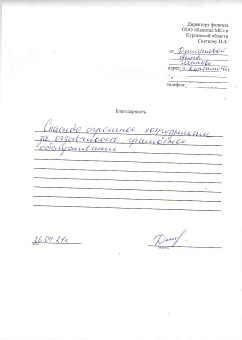 Директору филиала
ООО «Капитал МС» в
Курганской области
Светкову Н.А.
от Дмитриевой
адрес:
телефон
Благодарность
Спасибо огромное сотрудникам
за отзывчивость грамотное
обслуживание
26.04.21г.